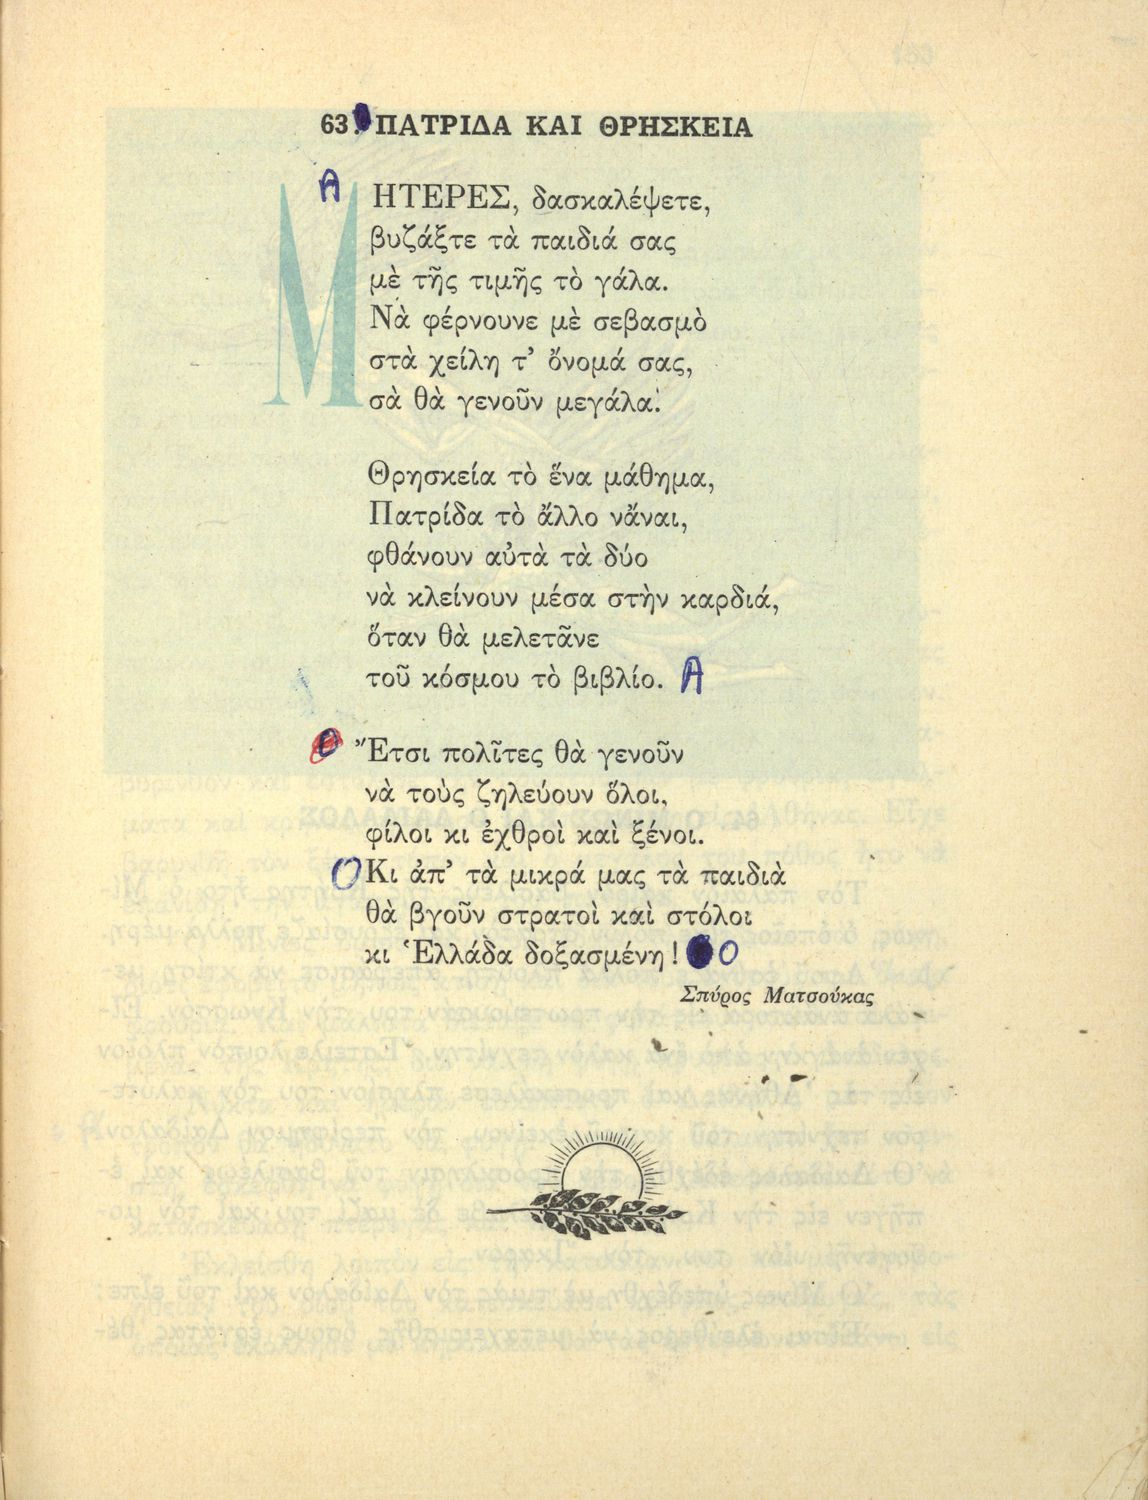 63. ΠΑΤΡΙΔΑ ΚΑΙ ΘΡΗΣΚΕΙΑ
Α
ΜΗΤΕΡΕΣ, δασκαλέψετε,
βυζάξτε τὰ παιδιά σας
μὲ τῆς τιμῆς τὸ γάλα.
Νὰ φέρνουνε μὲ σεβασμὸ
στὰ χείλη τ' ὄνομά σας,
σὰ θὰ γενοῦν μεγάλα.
Θρησκεία τὸ ἕνα μάθημα,
Πατρίδα τὸ ἄλλο νἄναι,
φθάνουν αὐτὰ τὰ δύο
νὰ κλείνουν μέσα στὴν καρδιά,
ὅταν θὰ μελετᾶνε
τοῦ κόσμου τὸ βιβλίο. Α
Ο Ἔτσι πολῖτες θὰ γενοῦν
νὰ τοὺς ζηλεύουν ὅλοι,
φίλοι κι ἐχθροὶ καὶ ξένοι.
Ο Κι ἀπ' τὰ μικρά μας τὰ παιδιὰ
θὰ βγοῦν στρατοὶ καὶ στόλοι
κι Ἑλλάδα δοξασμένη! Ο
Σπύρος Ματσούκας